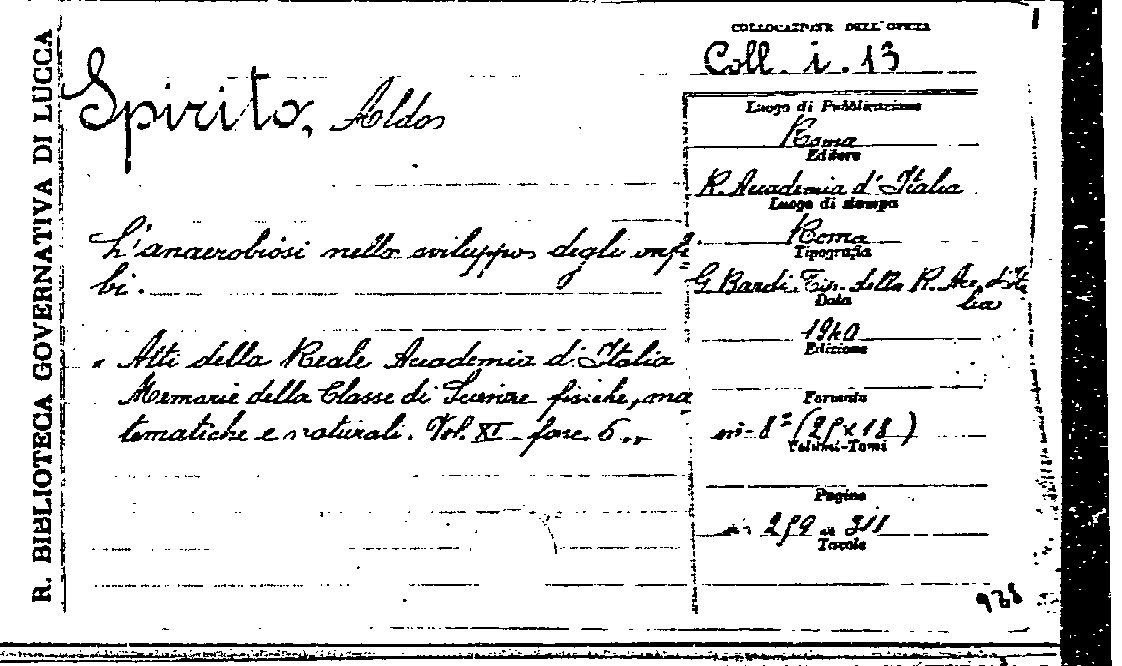 R. BIBLIOTECA GOVERNATIVA DI LUCCA
Spirito, Aldo
L'anaerobiosi nello sviluppo degli anfi=
bi.
" Atti della Reale Accademia d'Italia
Memorie della Classe di Scienze fisiche, ma
tematiche e naturali. Vol. XI - fasc. 6 "
COLLOCAZIONE DELL'OPERA
Coll. i. 13
Luogo di Pubblicazione
Roma
Editore
R. Accademia d'Italia
Luogo di stampa
Roma
Tipografia
G. Bardi. Tip. della R. Acc. d'Ita
lia
Data
1940
Edizione
Formato
in-8° (25x18)
Volumi-Tomi
Pagine
259 a 311
Tavole
938